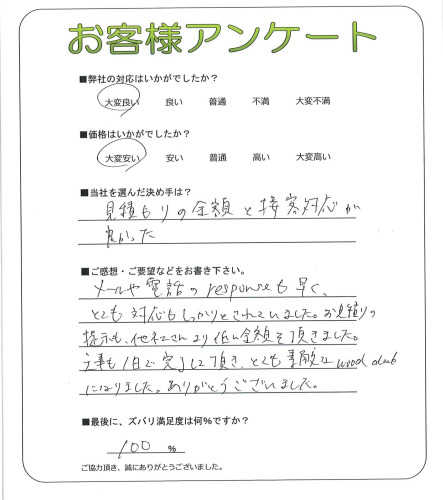 お客様アンケート
■弊社の対応はいかがでしたか？
大変良い 良い 普通 不満 大変不満
■価格はいかがでしたか？
大変安い 安い 普通 高い 大変高い
■当社を選んだ決め手は？
見積もりの金額と接客対応が
良かった
■ご感想・ご要望などをお書き下さい。
メールや電話のresponseも早く、
とても対応もしっかりとされていました。お見積りの
提示も、他社さんより低い金額を頂きました。
工事も1日で完了して頂き、とても素敵なwood
になりました。ありがとうございました。
■最後に、ズバリ満足度は何%ですか？
100 %
ご協力頂き、誠にありがとうございました。